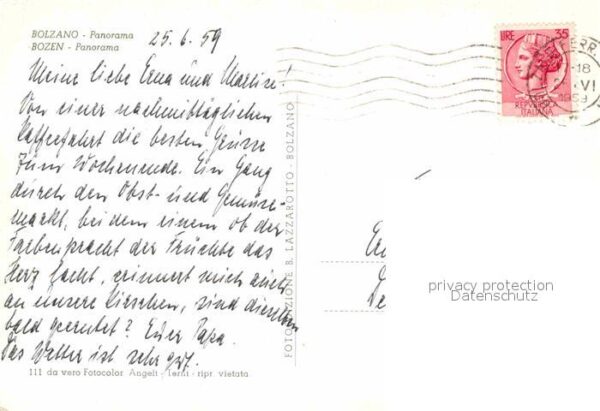 BOLZANO - Panorama
BOZEN - Panorama
25.6.59
Meine liebe Erna und Marlise!
Von einer nachmittäglichen
Kaffeefahrt die besten Grüsse
zum Wochenende. Ein Gang
durch den Obst- und Gemüse-
markt, bei dem einem ob der
Farbenpracht der Früchte das
Herz lacht, erinnert mich auch
an unsere Kirschen, sind dieselben
bald geerntet? Euer Papa.
Das Wetter ist sehr gut.
111 da vero Fotocolor Angeli - Terni - ripr. vietata.
FOTOEDIZIONE B. LAZZAROTTO - BOLZANO
LIRE 35
REPVBBLICA
ITALIANA
FERR
-18
VI
1959
privacy protection
Datenschutz